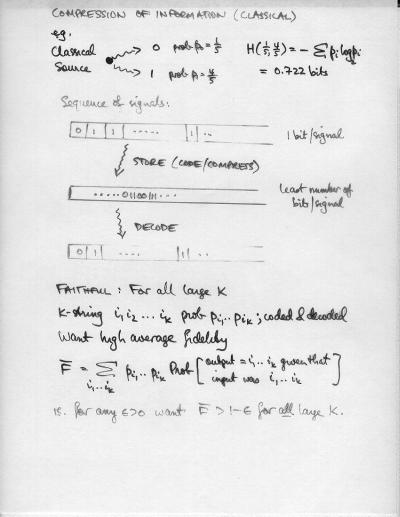 COMPRESSION OF INFORMATION (CLASSICAL)
eg.
Classical Source 0 prob p₀ = 1/5 H(1/5, 4/5) = - Σ pᵢ log pᵢ
1 prob p₁ = 4/5 = 0.722 bits
Sequence of signals:
0 1 1 ..... 1 .. 1 bit/signal
STORE (CODE/COMPRESS)
.....01100111... Least number of bits/signal
DECODE
0 1 ..... 1 ..
FAITHFUL : For all large K
K-string i₁ i₂ ... iₖ prob pᵢ₁..pᵢₖ ; coded & decoded
Want high average fidelity
F̄ = Σ pᵢ₁..pᵢₖ Prob [ output = i₁..iₖ given that
i₁..iₖ input was i₁..iₖ ]
is. for any ε>0 want F̄ > 1-ε for all large K.